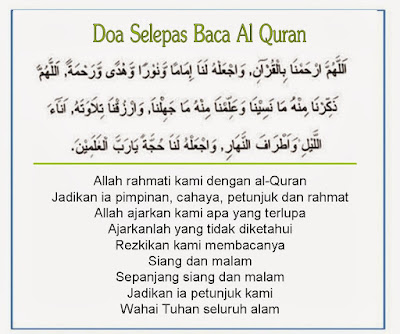 Doa Selepas Baca Al Quran
اَللَّهُمَّ ارْحَمْنَا بِالْقُرْآنِ, وَاجْعَلْهُ لَنَا إِمَامًا وَّنُوْرًا وَّهُدًى وَّرَحْمَةً, اَللَّهُمَّ
ذَكِّرْنَا مِنْهُ مَا نَسِيْنَا وَعَلِّمْنَا مِنْهُ مَا جَهِلْنَا, وَارْزُقْنَا تِلَاوَتَهُ, اَنَآءَ
اللَّيْلِ وَاَطْرَافَ النَّهَارِ, وَاجْعَلْهُ لَنَا حُجَّةً يَارَبَّ الْعَلَمِيْنَ.
Allah rahmati kami dengan al-Quran
Jadikan ia pimpinan, cahaya, petunjuk dan rahmat
Allah ajarkan kami apa yang terlupa
Ajarkanlah yang tidak diketahui
Rezkikan kami membacanya
Siang dan malam
Sepanjang siang dan malam
Jadikan ia petunjuk kami
Wahai Tuhan seluruh alam